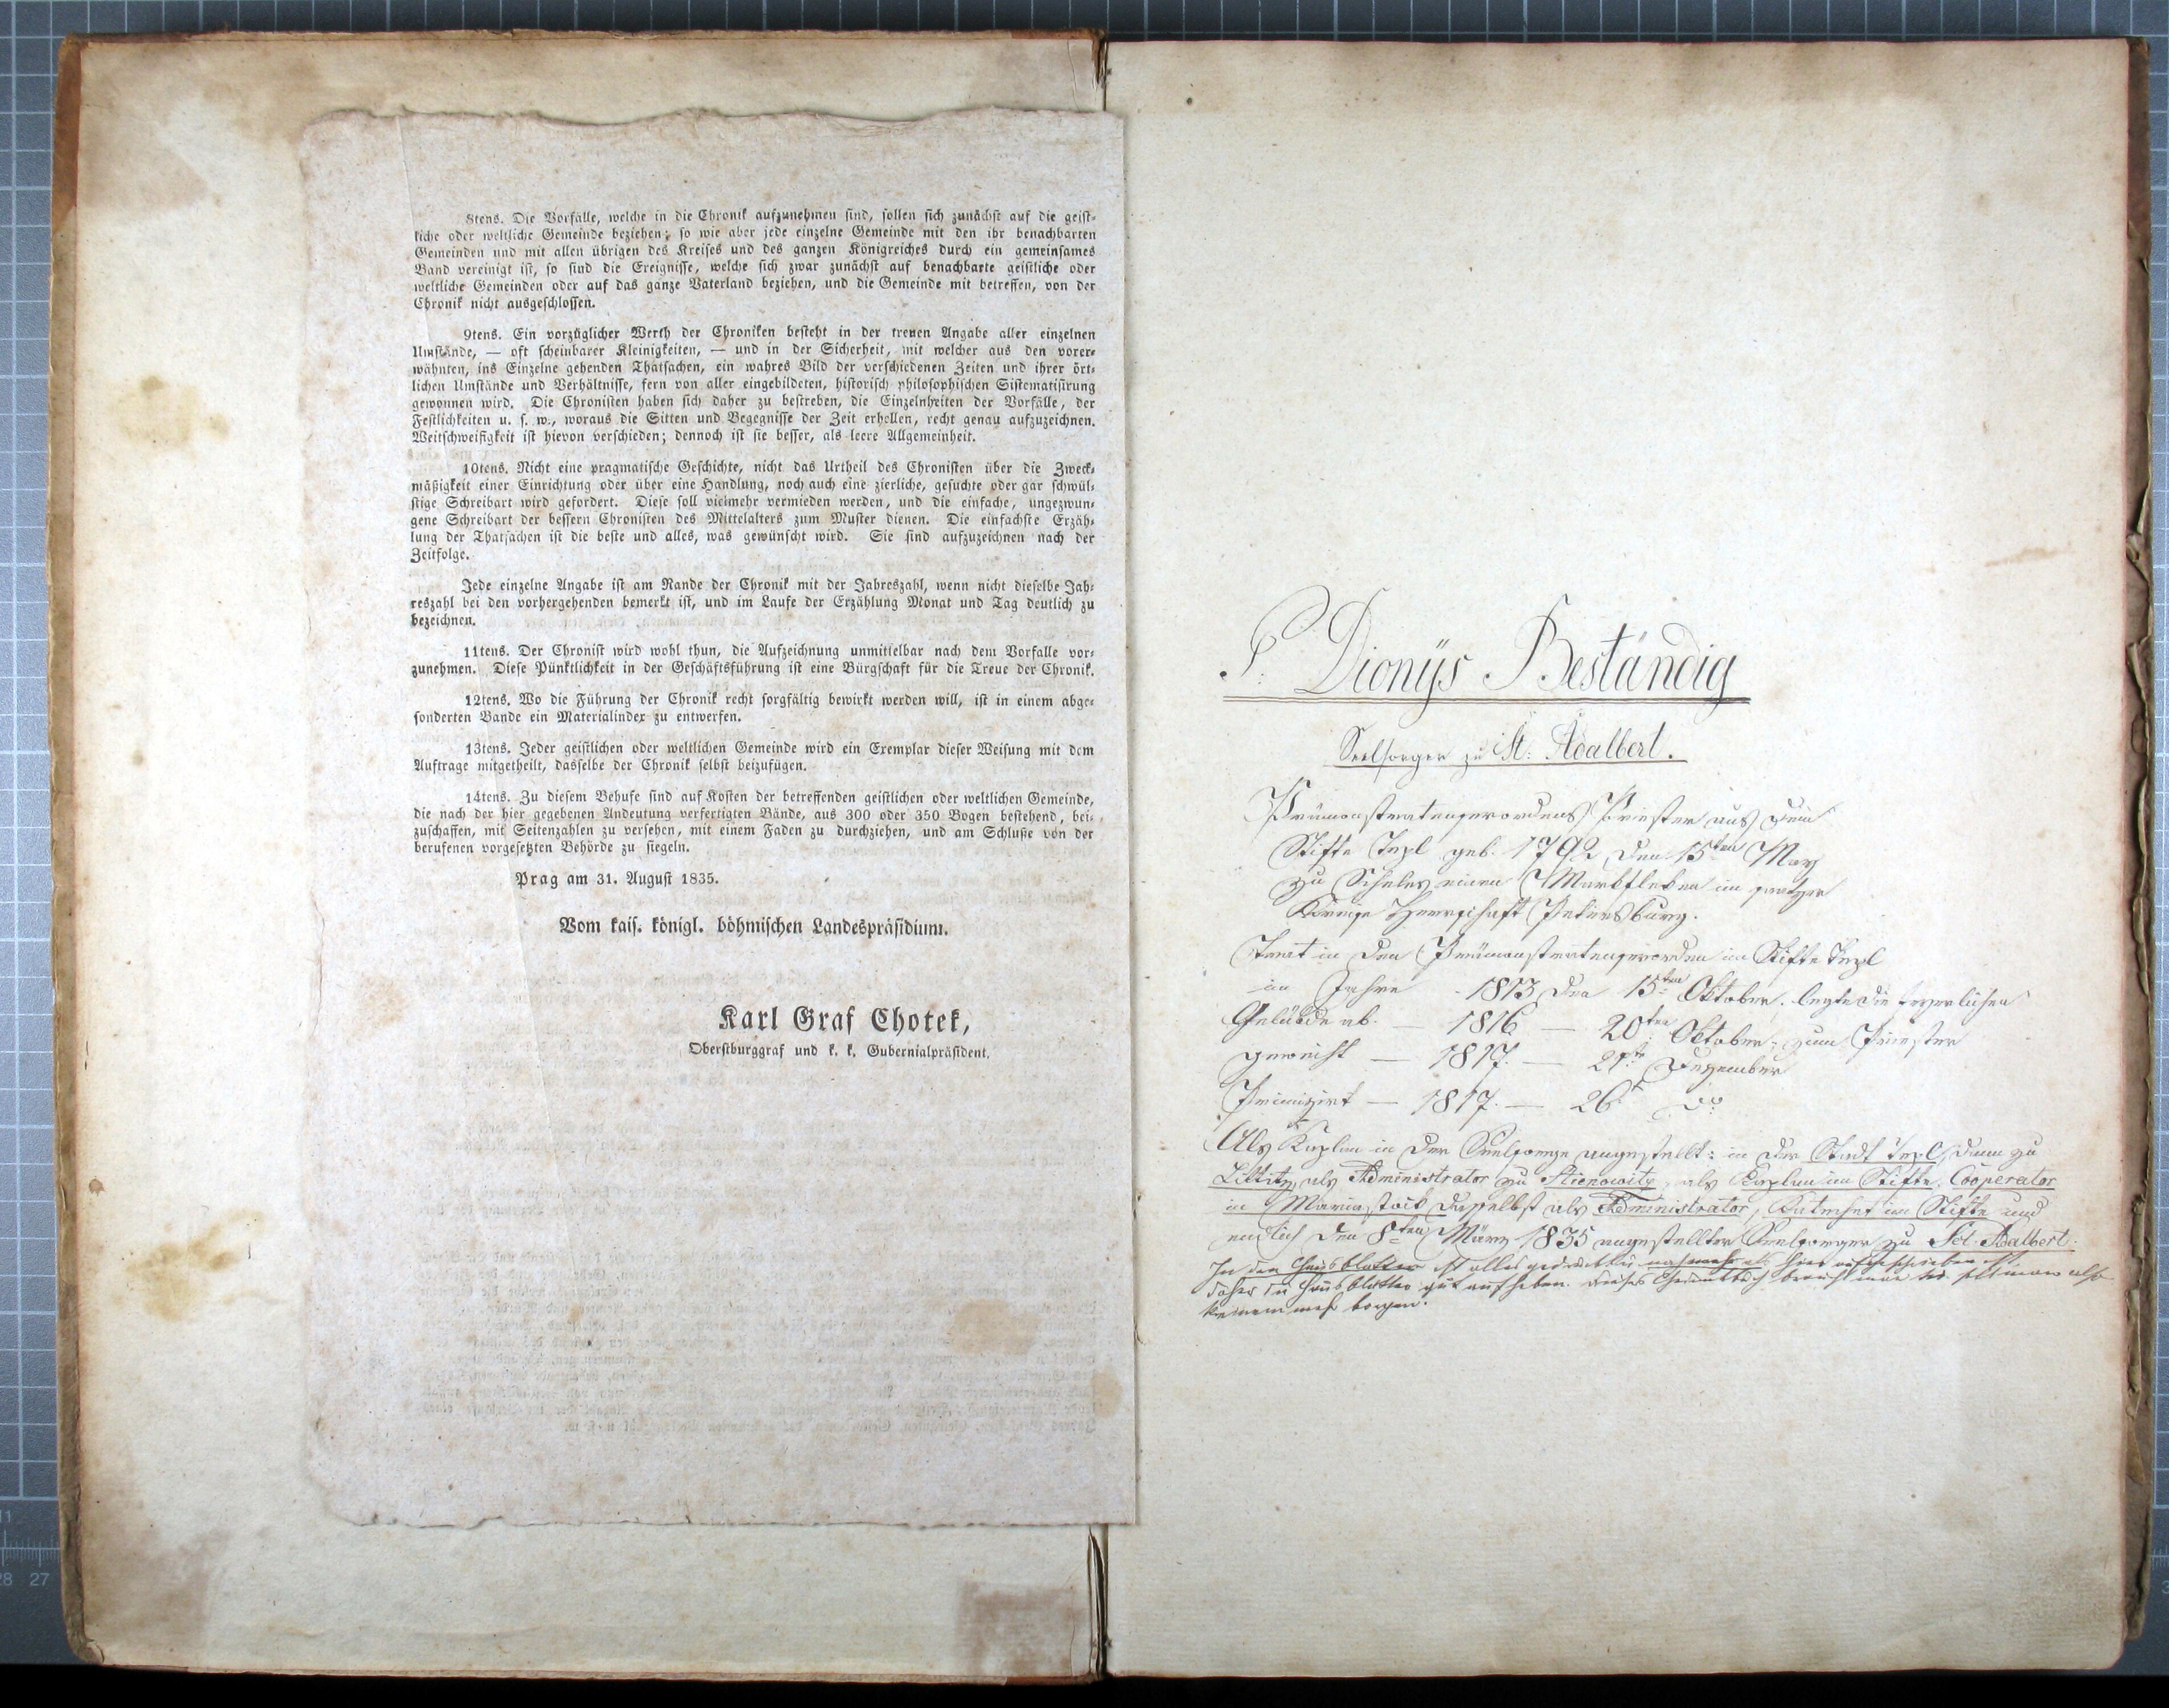 8tens. Die Vorfälle, welche in die Chronik aufzunehmen sind, sollen sich zunächst auf die geist-
liche oder weltliche Gemeinde beziehen; so wie aber jede einzelne Gemeinde mit den ihr benachbarten
Gemeinden und mit allen übrigen des Kreises und des ganzen Königreiches durch ein gemeinsames
Band vereinigt ist, so sind die Ereignisse, welche sich zwar zunächst auf benachbarte geistliche oder
weltliche Gemeinden oder auf das ganze Vaterland beziehen, und die Gemeinde mit betreffen, von der
Chronik nicht ausgeschlossen.
9tens. Ein vorzüglicher Werth der Chroniken besteht in der treuen Angabe aller einzelnen
Umstände, — oft scheinbarer Kleinigkeiten, — und in der Sicherheit, mit welcher aus den vorer-
wähnten, ins Einzelne gehenden Thatsachen, ein wahres Bild der verschiedenen Zeiten und ihrer ört-
lichen Umstände und Verhältnisse, fern von aller eingebildeten, historisch philosophischen Sistematisirung
gewonnen wird. Die Chronisten haben sich daher zu bestreben, die Einzelnheiten der Vorfälle, der
Festlichkeiten u. s. w., woraus die Sitten und Begegnisse der Zeit erhellen, recht genau aufzuzeichnen.
Weitschweifigkeit ist hievon verschieden; dennoch ist sie besser, als leere Allgemeinheit.
10tens. Nicht eine pragmatische Geschichte, nicht das Urtheil des Chronisten über die Zweck-
mäßigkeit einer Einrichtung oder über eine Handlung, noch auch eine zierliche, gesuchte oder gar schwül-
stige Schreibart wird gefordert. Diese soll vielmehr vermieden werden, und die einfache, ungezwun-
gene Schreibart der bessern Chronisten des Mittelalters zum Muster dienen. Die einfachste Erzäh-
lung der Thatsachen ist die beste und alles, was gewünscht wird. Sie sind aufzuzeichnen nach der
Zeitfolge.
Jede einzelne Angabe ist am Rande der Chronik mit der Jahreszahl, wenn nicht dieselbe Jah-
reszahl bei den vorhergehenden bemerkt ist, und im Laufe der Erzählung Monat und Tag deutlich zu
bezeichnen.
11tens. Der Chronist wird wohl thun, die Aufzeichnung unmittelbar nach dem Vorfalle vor-
zunehmen. Diese Pünktlichkeit in der Geschäftsführung ist eine Bürgschaft für die Treue der Chronik.
12tens. Wo die Führung der Chronik recht sorgfältig bewirkt werden will, ist in einem abge-
sonderten Bande ein Materialindex zu entwerfen.
13tens. Jeder geistlichen oder weltlichen Gemeinde wird ein Exemplar dieser Weisung mit dem
Auftrage mitgetheilt, dasselbe der Chronik selbst beizufügen.
14tens. Zu diesem Behufe sind auf Kosten der betreffenden geistlichen oder weltlichen Gemeinde,
die nach der hier gegebenen Andeutung verfertigten Bände, aus 300 oder 350 Bogen bestehend, bei-
zuschaffen, mit Seitenzahlen zu versehen, mit einem Faden zu durchziehen, und am Schluße von der
berufenen vorgesetzten Behörde zu siegeln.
Prag am 31. August 1835.
Vom kais. königl. böhmischen Landespräsidium.
Karl Graf Chotek,
Oberstburggraf und k. k. Gubernialpräsident.
P. Dionÿs Beständig
Seelsorger zu St: Adalbert.
Prämonstratenserordens Priester aus dem
Stifte Tepl geb. 1792 den 15ten May
zu Scheles einen Marktflecken im
Kreise Herrschaft Petersburg.
Trat in den Prämonstratenserorden im Stifte Tepl
im Jahre - 1813 den 15ten Oktober. legte die feyerlichen
Gelübde ab. — 1816 — 20ten Oktober, zum Priester
geweiht — 1817. — 21te Dezember
Primizirt — 1817. — 26t do
Als Kaplan in der Seelsorge angestellt: in der Stadt Tepl, dann zu
Littitz, als Administrator zu Stienowitz, als Kaplan im Stifte, Cooperator
in Mariastock daselbst als Administrator, Katechet im Stifte und
endlich den 8ten März 1835 angestellter Seelsorger zu Sct. Adalbert.
In den Hausblätter ist alles hier
daher die Hausblätter gut aufheben. dieses braucht man also
keinem mehr borgen.